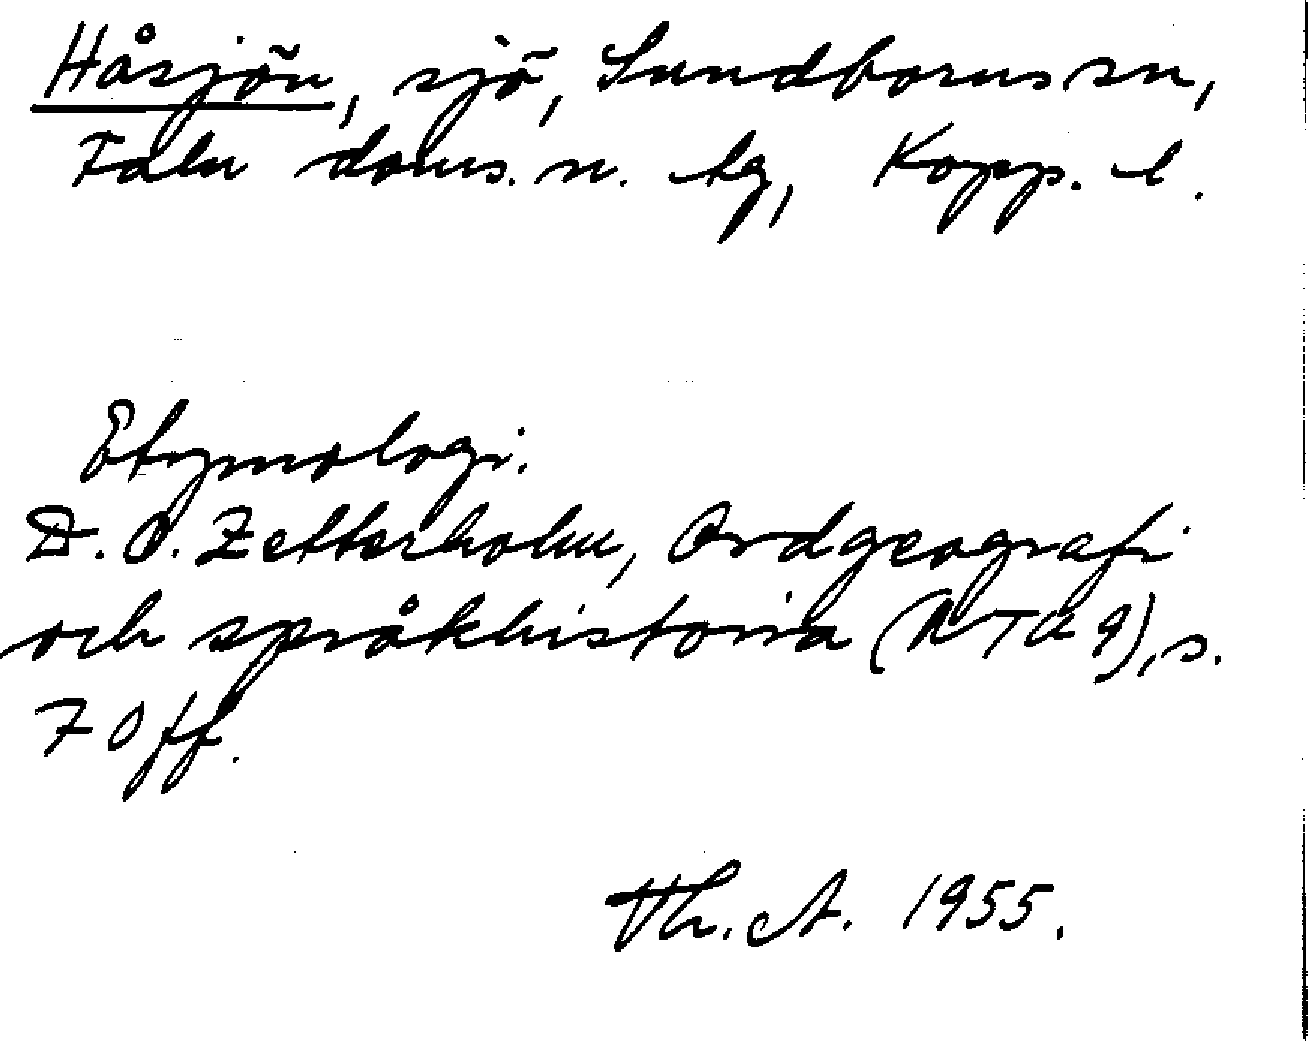 Håsjön, sjö, Sundborns sn,
Falu doms. n. tg, Kopp. l.
Etymologi.
D. O. Zetterholm, Ordgeografi
och språkhistoria (NTU 9), s.
70 ff.
Th. A. 1955.